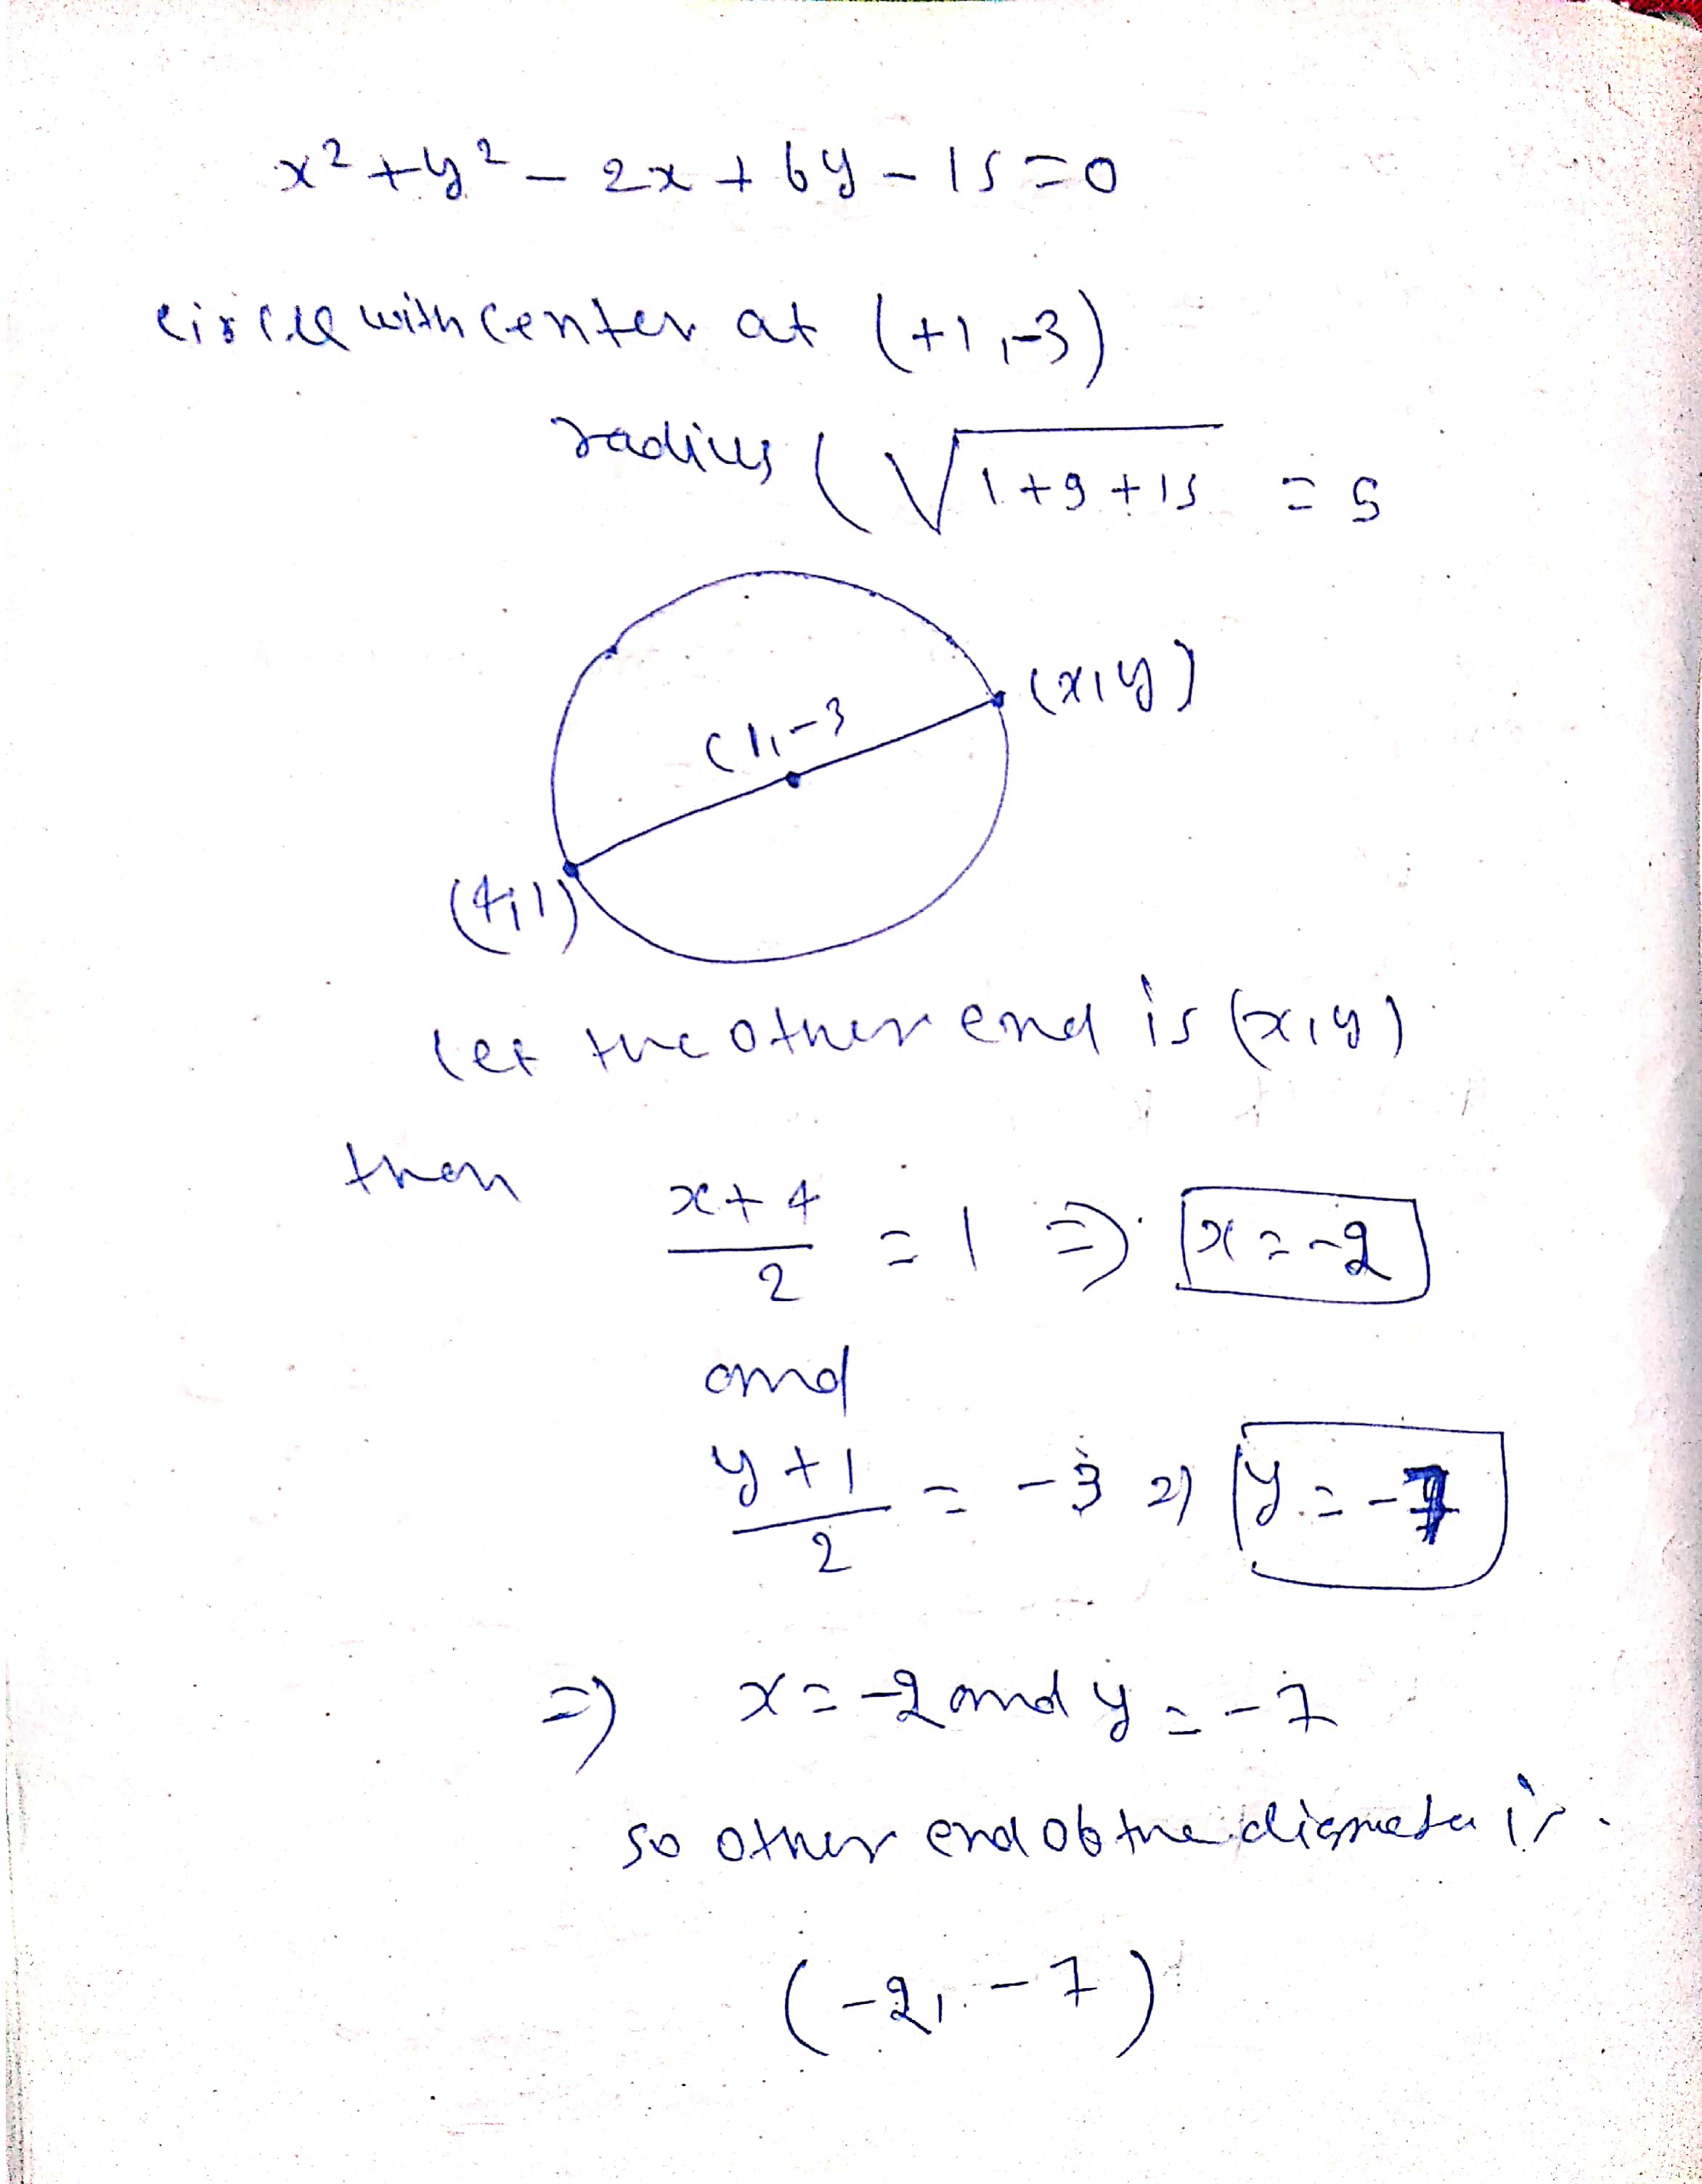 x² + y² - 2x + 6y - 15 = 0
circle with center at (+1, -3)
radius (√1+9+15 = 5
(x, y)
(1, -3
(4, 1)
let the other end is (x, y)
then x+4/2 = 1 ⇒ x = -2
and
y+1/2 = -3 ⇒ y = -7
⇒ x = -2 and y = -7
so other end of the diameter is
(-2, -7)